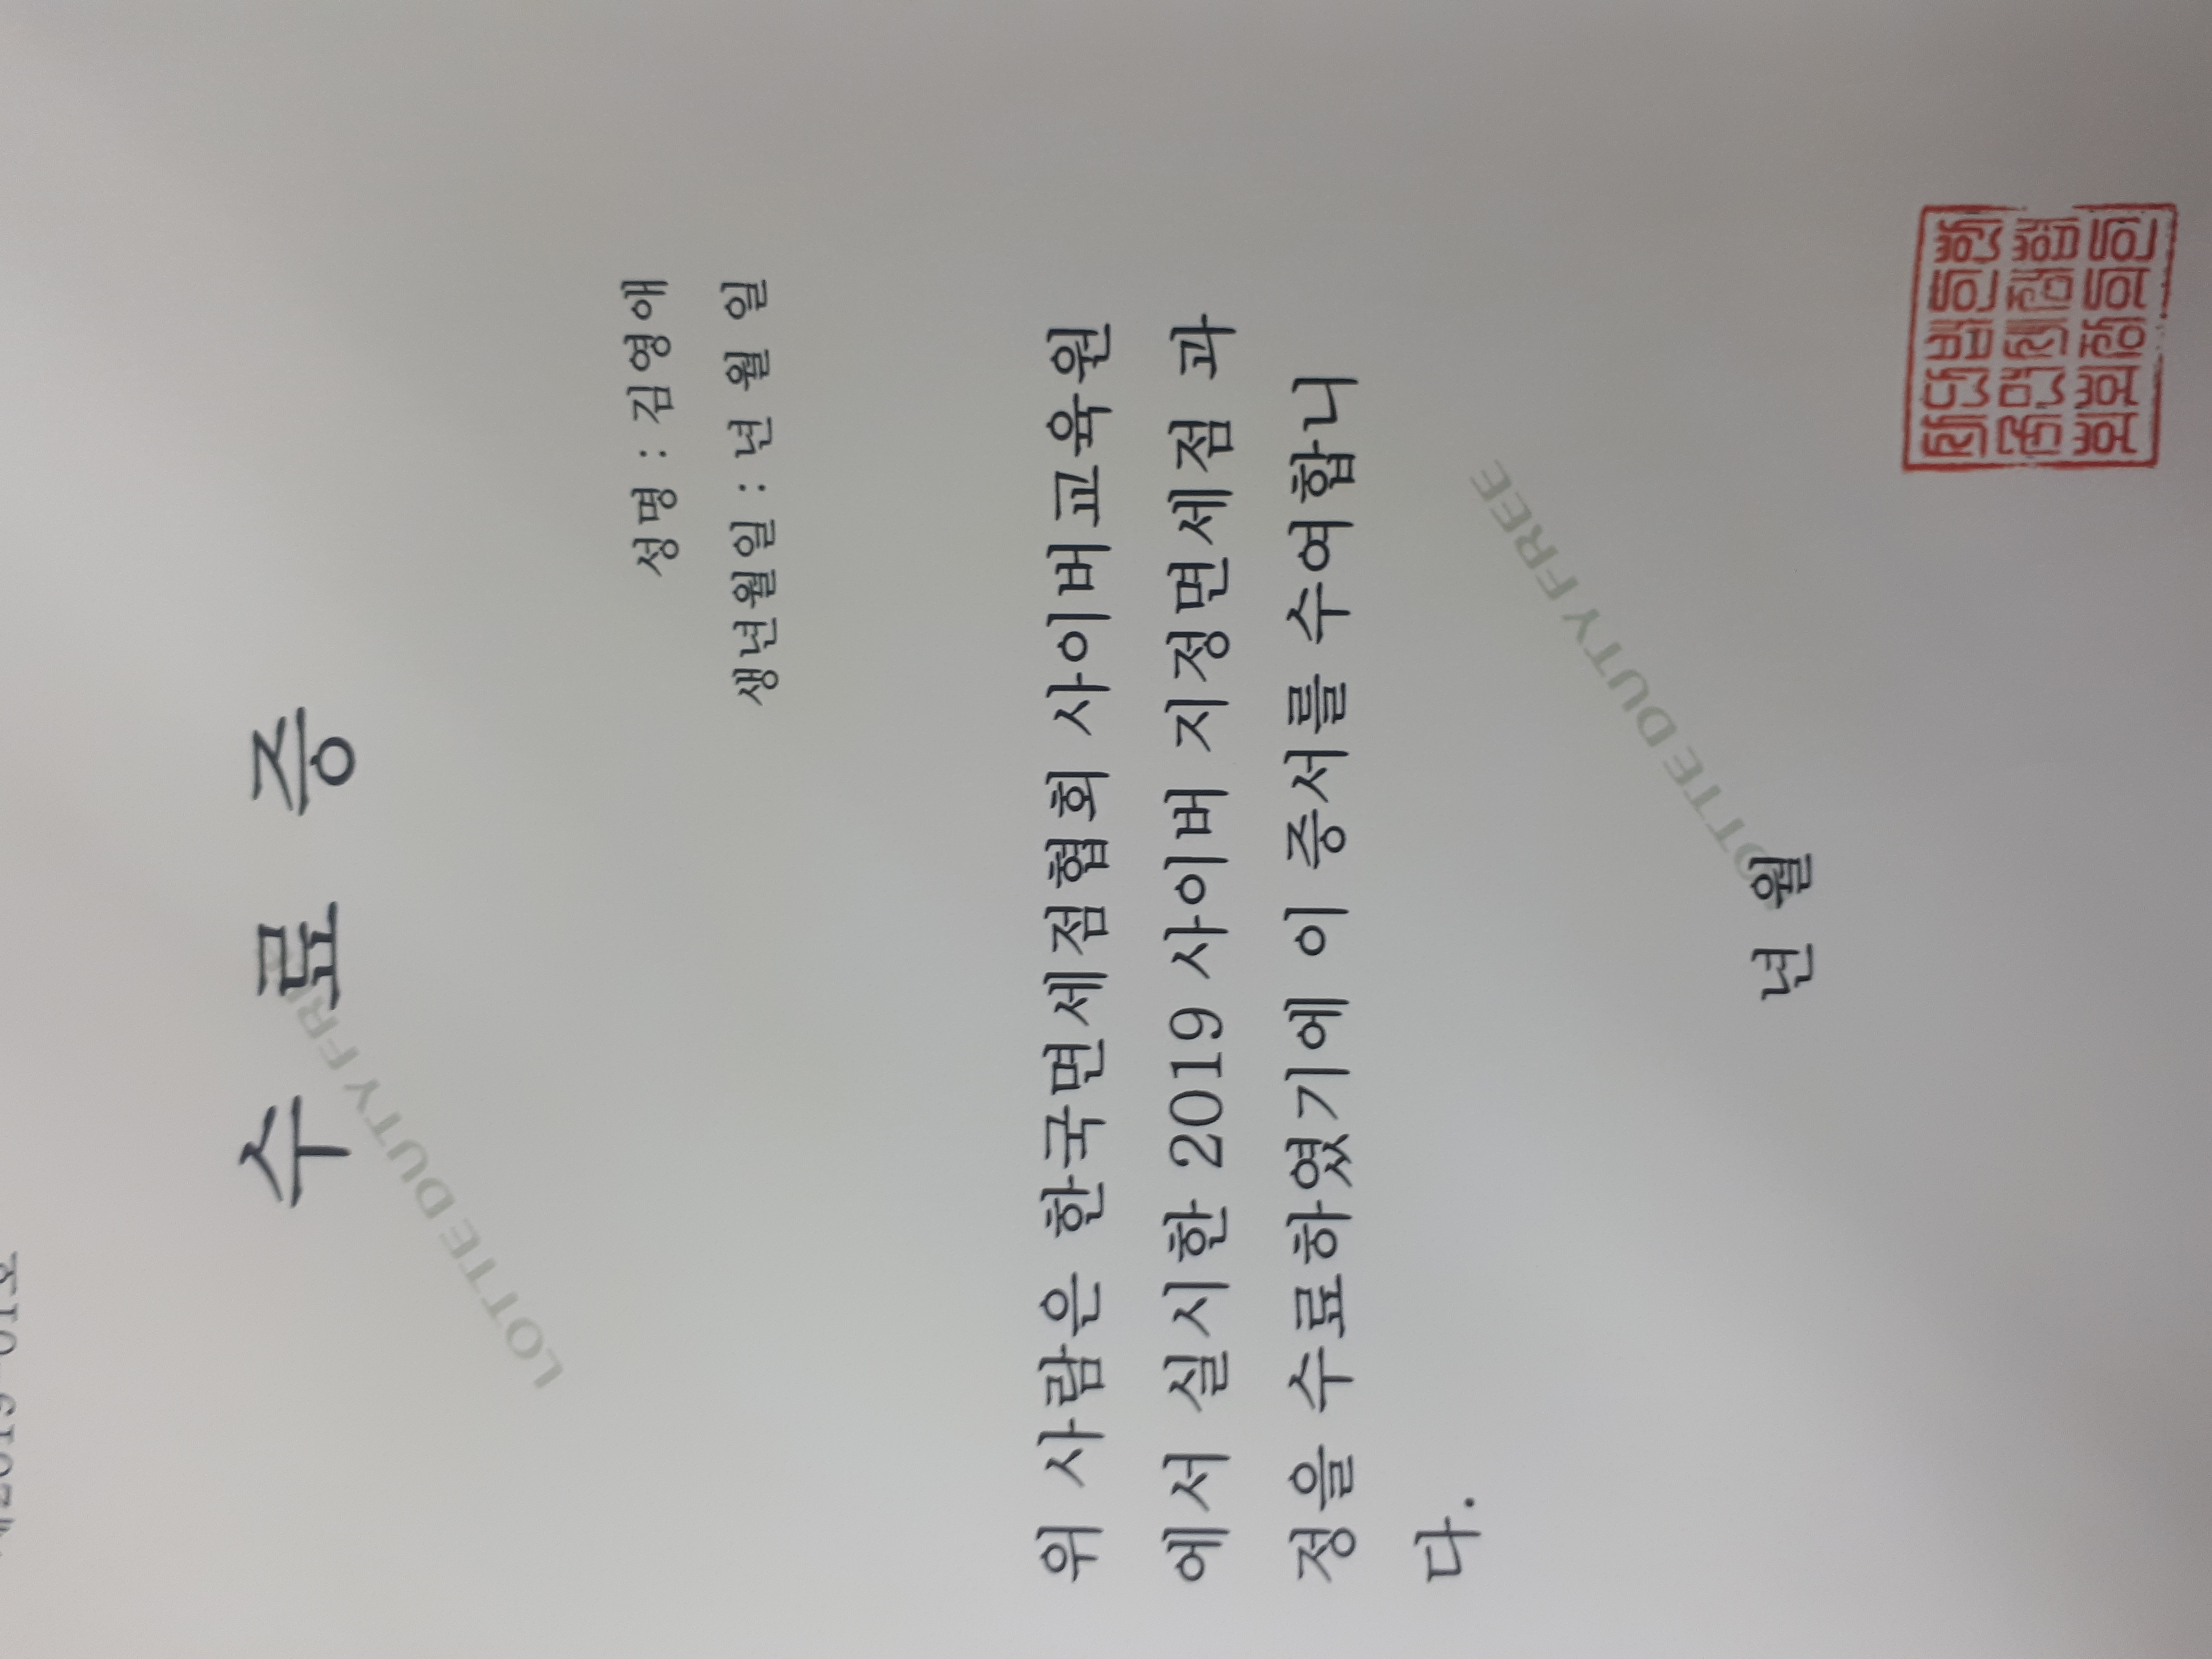 수 료 증
성명 : 김영애
생년월일 : 년 월 일
위 사람은 한국면세점협회 사이버교육원
에서 실시한 2019 사이버 지정면세점 과
정을 수료하였기에 이 증서를 수여합니
다.
년 월
LOTTE DUTY FREE
LOTTE DUTY FREE